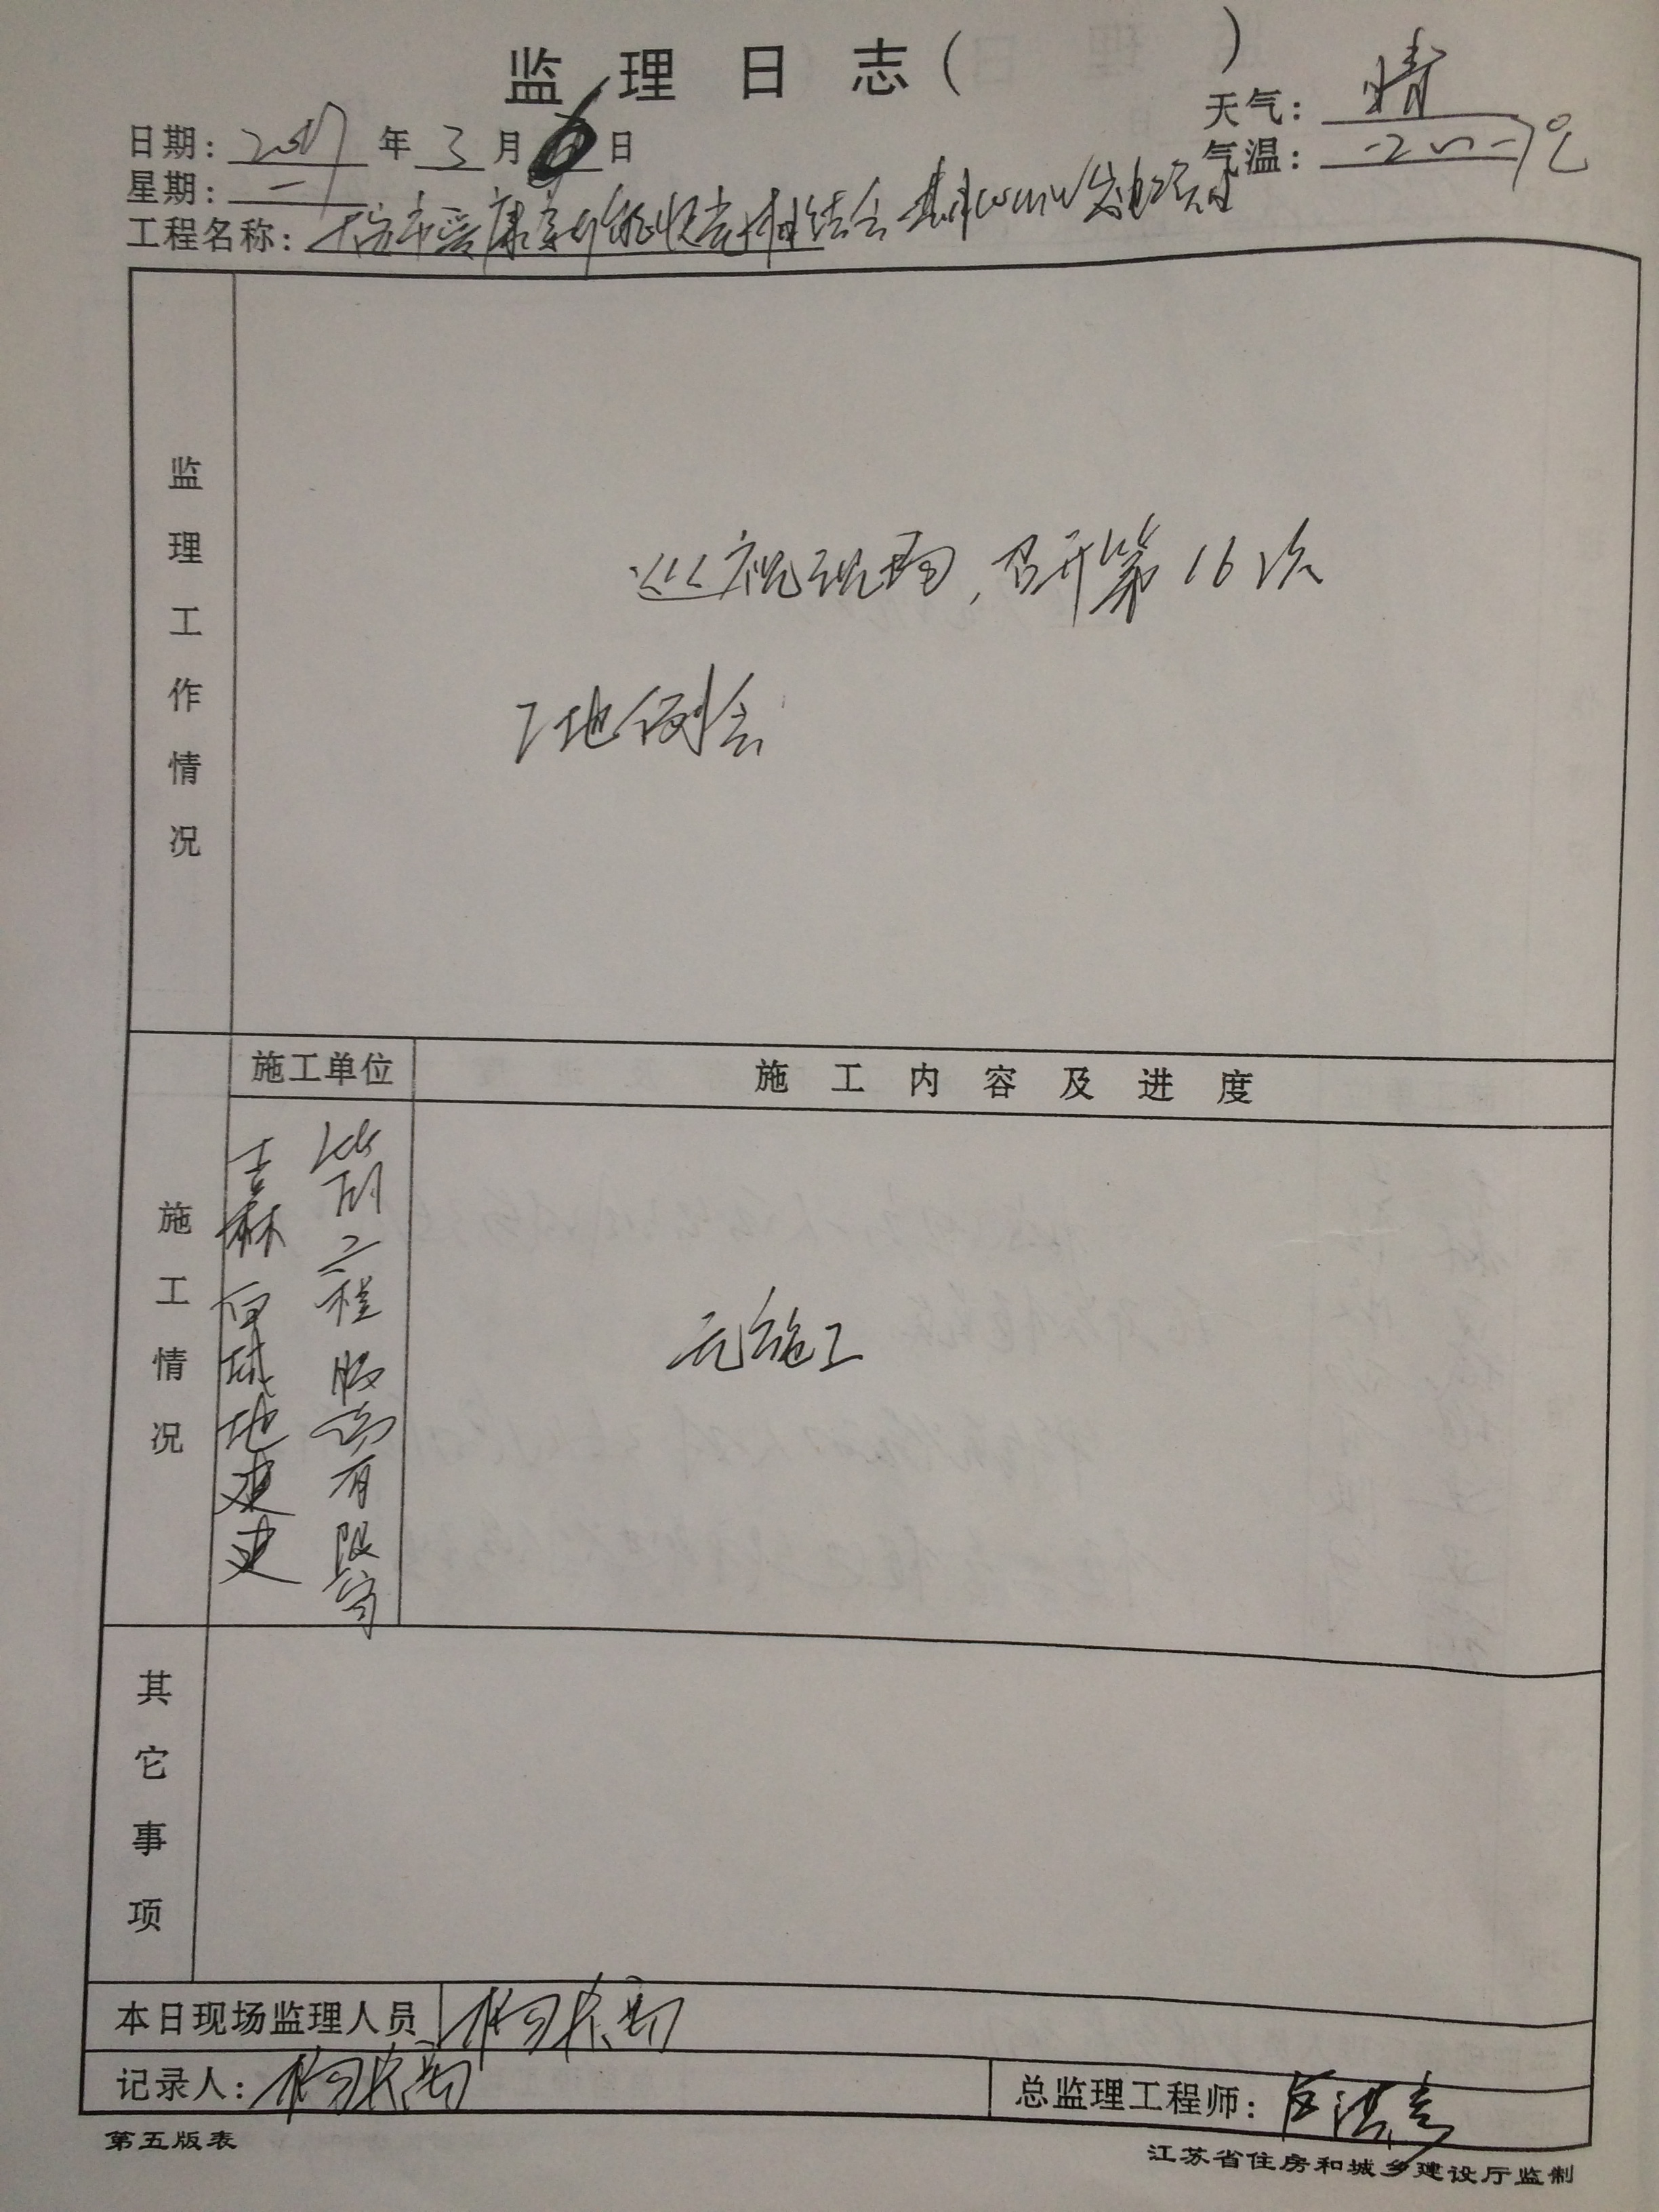 监理日志( )
日期: 2017 年 3 月 6 日
天气: 晴
星期: 一
气温: -2~-7℃
工程名称:
监理工作情况
巡视现场,召开第16次
工地例会
施工单位
施工内容及进度
施工情况
吉林白城地建建
工程股份有限公司
无施工
其它事项
本日现场监理人员
记录人:
总监理工程师:
第五版表
江苏省住房和城乡建设厅监制